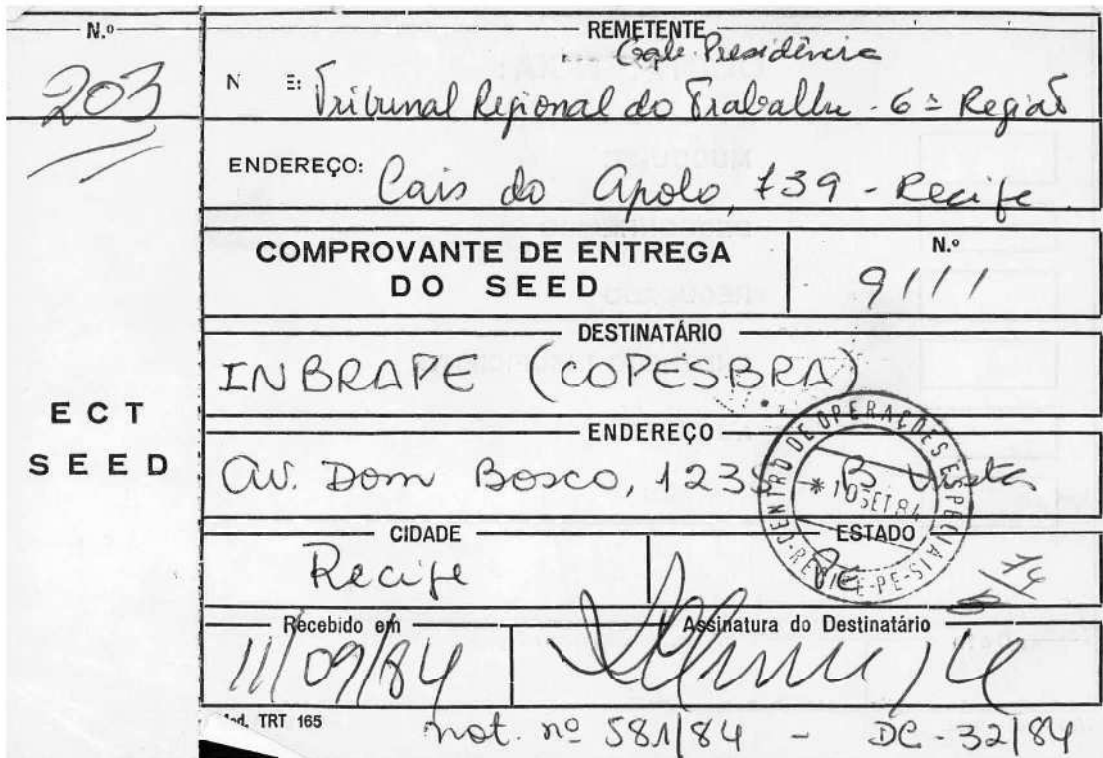 N.º
203
ECT
SEED
REMETENTE
Gab. Presidência
N E: Tribunal Regional do Trabalho - 6ª Região
ENDEREÇO: Cais do Apolo, 739 - Recife
COMPROVANTE DE ENTREGA
DO SEED
N.º
9111
DESTINATÁRIO
INBRAPE (COPESBRA)
ENDEREÇO
Av. Dom Bosco, 1235 B. Vista
CENTRO DE OPERAÇÕES ESPECIAIS
* 10 SET 84
RECIFE-PE-
CIDADE
Recife
ESTADO
Pe
Recebido em
11/09/84
Assinatura do Destinatário
Mod. TRT 165
not. nº 581/84 - DC-32/84